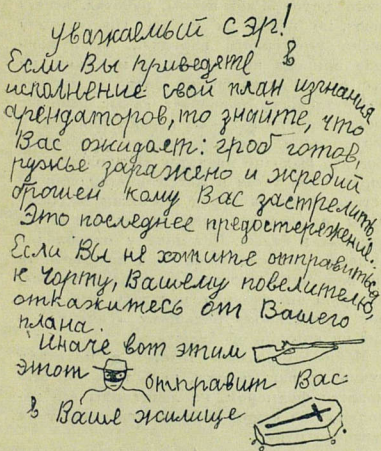 уважаемый сэр!
Если Вы приведете в
исполнение свой план изгнания
арендаторов, то знайте, что
Вас ожидает: гроб готов,
ружье заряжено и жребий
брошен кому Вас застрелить.
Это последнее предостережение.
Если Вы не хотите отправиться
к чорту, Вашему повелителю,
откажитесь от Вашего
плана.
Иначе вот этим
этот отправит Вас
в Ваше жилище